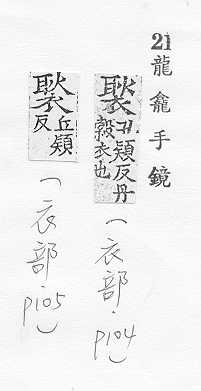 21 龍龕手鏡
褧 孔頴反丹縠衣也
(衣部.p104)
褧 丘頴反
(衣部.p105)